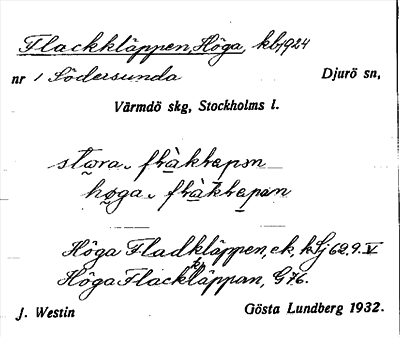 Flackkläppen, Höga, kbl924
nr 1 Södersunda Djurö sn,
Värmdö skg, Stockholms l.
stœra. fɩràkɩæpən
høga. fɩràkɩæpan
Höga Fladkläppen, ek, kSj 62.9.V
Höga Flackkläppan, G76.
J. Westin Gösta Lundberg 1932.